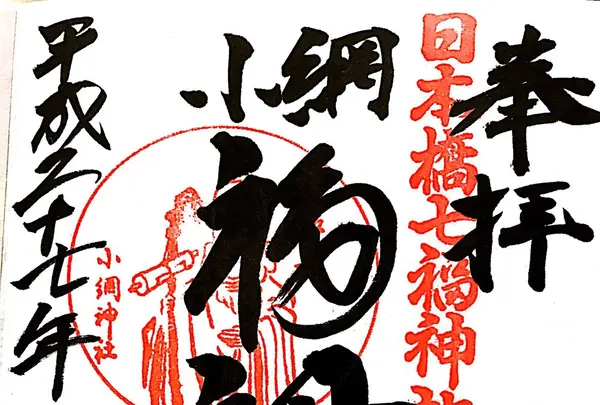 奉拝
日本橋七福神
小網
福
小網神社
平成二十七年